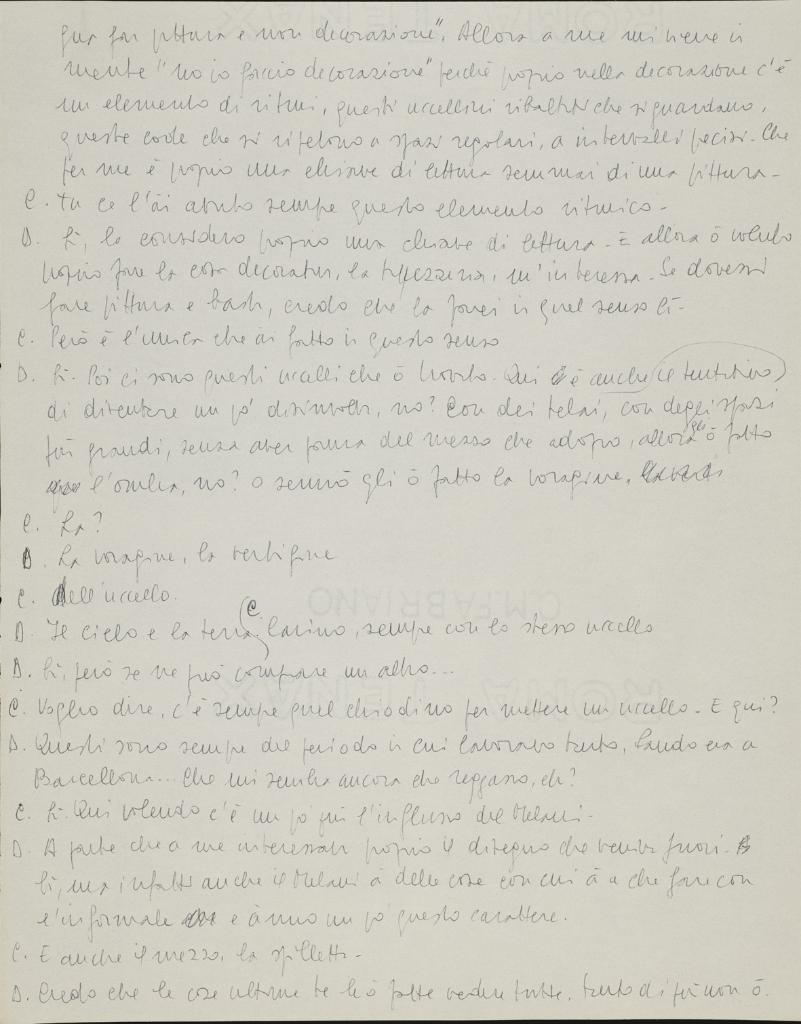 far pittura e non decorazione". Allora a me mi viene in
mente "no io faccio decorazione" perché proprio nella decorazione c'è
un elemento di ritmi, questi uccellini ribaltati che si guardano,
queste code che si ripetono a spazi regolari, a intervalli precisi. Che
per me è proprio una chiave di lettura semmai di una pittura -
C. Tu ce l'ài avuto sempre questo elemento ritmico -
D. Sì, lo considero proprio una chiave di lettura - E allora ò voluto
proprio fare la cosa decorativa, la tappezzeria, m'interessa - Se dovessi
fare pittura e basta, credo che la farei in quel senso lì -
C. Però è l'unica che ài fatto in questo senso
D. Sì. Poi ci sono questi uccelli che ò trovato. Qui è anche (il tentativo)
di diventare un pò disinvolti, no? Con dei telai, con degli spazi
più grandi, senza aver paura del mezzo che adopro, allora gli ò fatto
l'ombra, no? o sennò gli ò fatto la voragine,
C. La?
D. La voragine, la vertigine
C. Dell'uccello.
D. Il cielo e la terra (C. , sempre con lo stesso uccello
D. Sì, però se ne può comprare un altro...
C. Voglio dire, c'è sempre quel chiodino per mettere un uccello - E qui?
D. Questi sono sempre del periodo in cui lavoravo tanto, Sandro era a
Barcellona... Che mi sembra ancora che reggano, eh?
C. Sì. Qui volendo c'è un pò più l'influsso del Melani -
D. A parte che a me interessava proprio il disegno che veniva fuori -
Sì, ma infatti anche il Melani à delle cose con cui à a che fare con
l'informale e ànno un pò questo carattere.
C. E anche il mezzo, la spilletta -
D. Credo che le cose ultime te le ò fatte vedere tutte, tanto di più non ò.